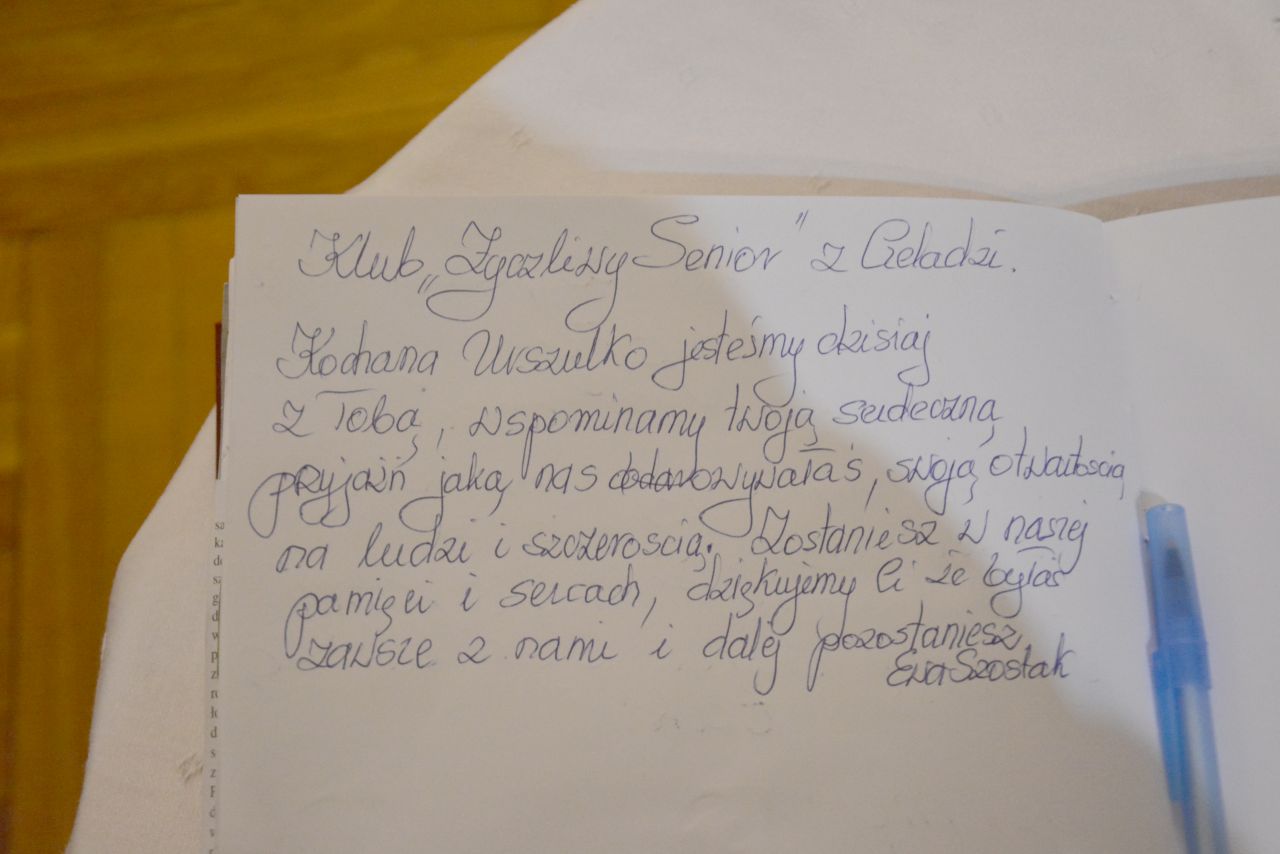 Klub „Życzliwy Senior” z Czeladzi.
Kochana Urszulko jesteśmy dzisiaj
z Tobą, wspominamy twoją serdeczną
przyjaźń jaką nas obdarowywałaś, swoją otwartością
na ludzi i szczerością. Zostaniesz w naszej
pamięci i sercach, dziękujemy Ci że byłaś
zawsze z nami i dalej pozostaniesz
Ewa Szostak